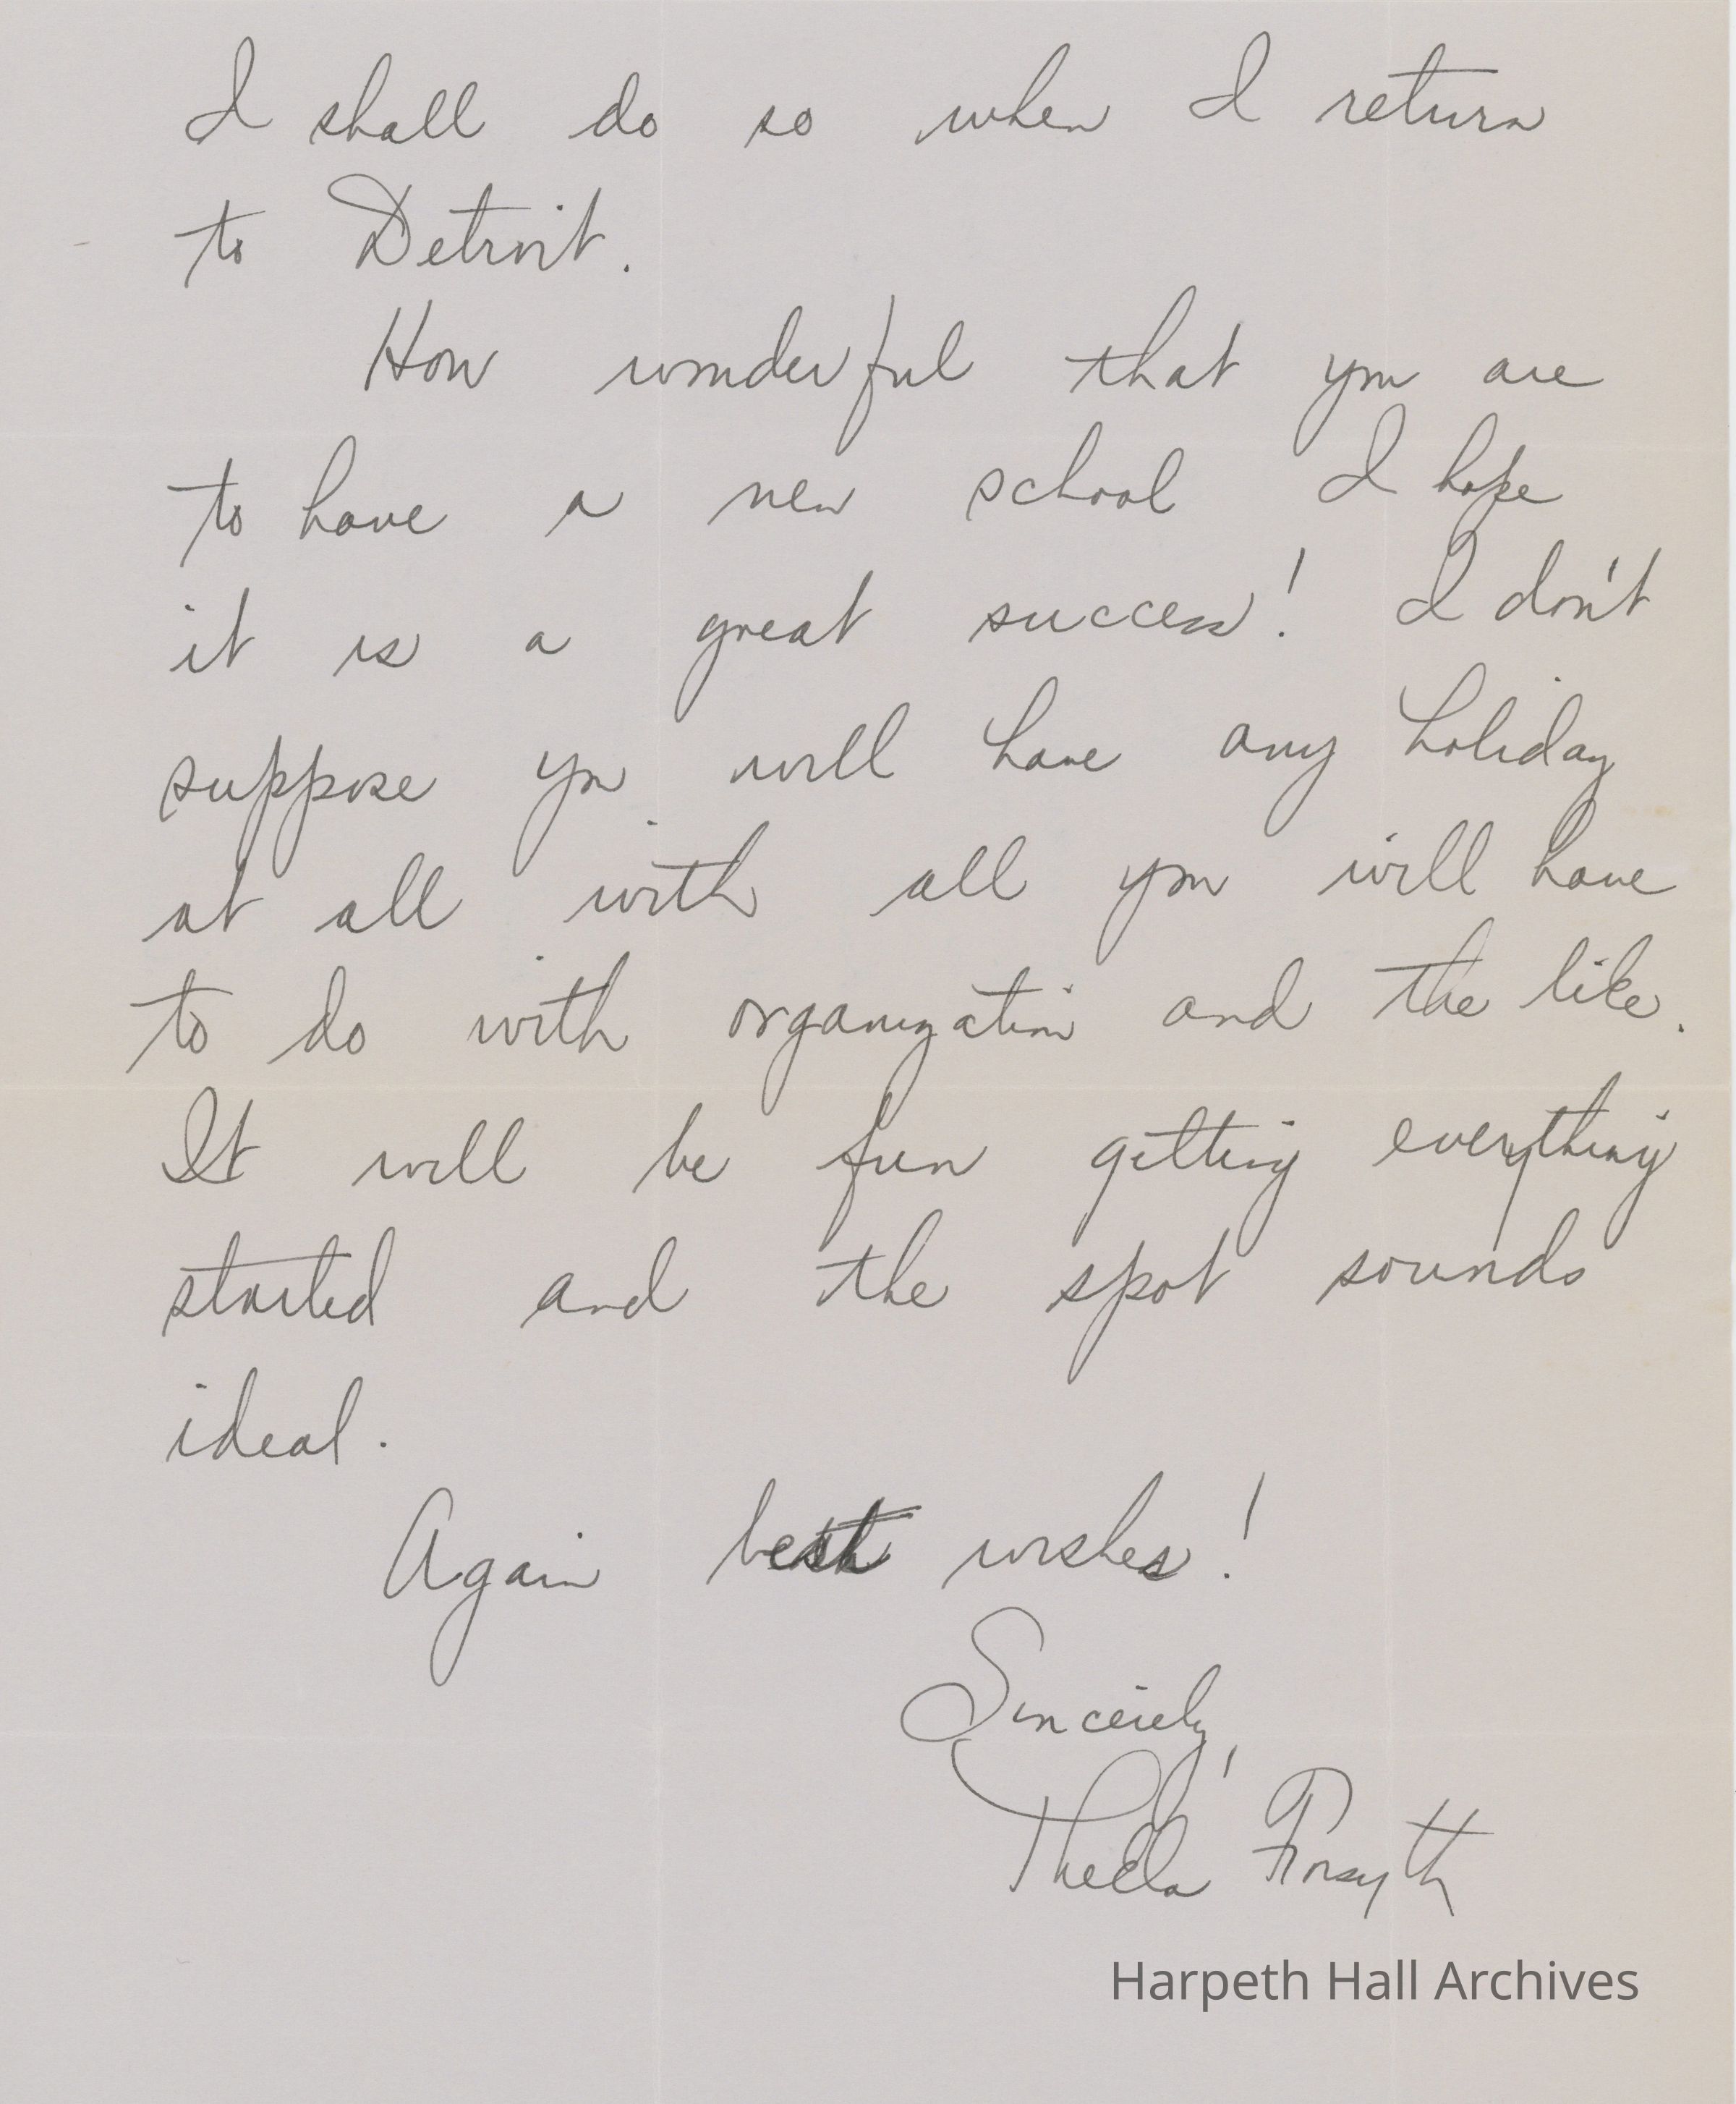 I shall do so when I return
to Detroit.
How wonderful that you are
to have a new school I hope
it is a great success! I don't
suppose you will have any holiday
at all with all you will have
to do with organization and the like.
It will be fun getting everything
started and the spot sounds
ideal.
Again best wishes!
Sincerely,
Thella Forsyth
Harpeth Hall Archives